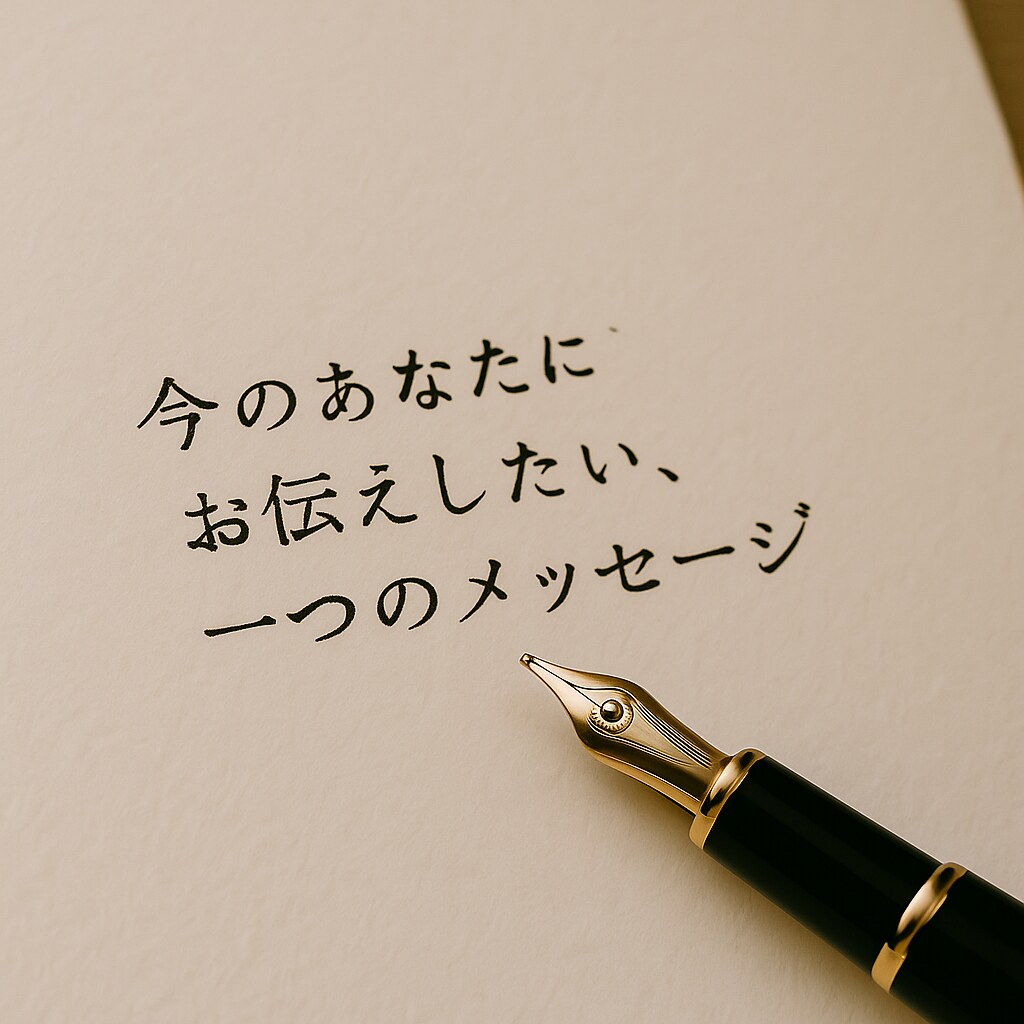 今のあなたに
お伝えしたい、
一つのメッセージ